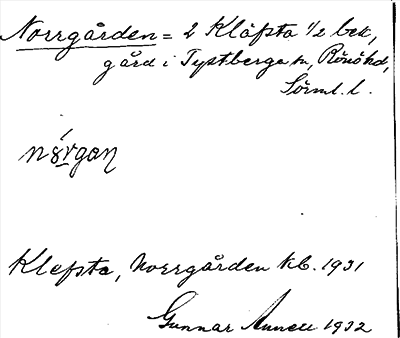 Norrgården = 2 Kläfsta 1/2 bek,
gård i Tystberga sn, Rönö hd,
Sörml. l.
Klefsta, Norrgården Kb. 1931
Gunnar 1932